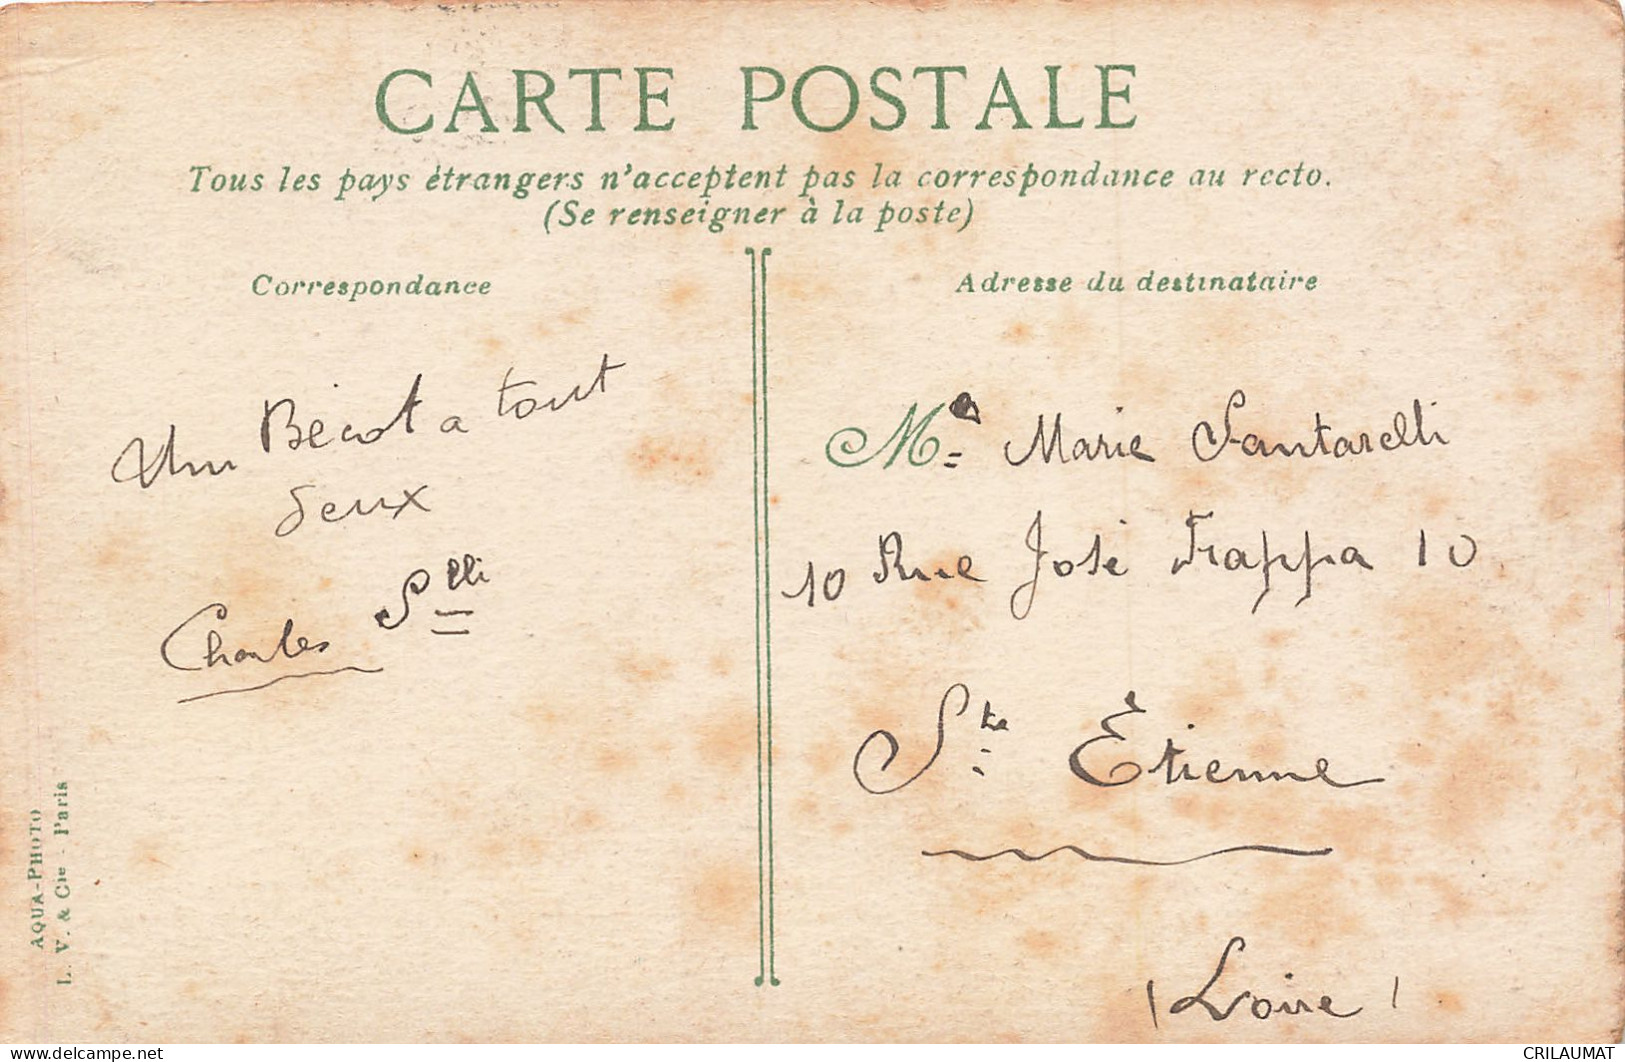 CARTE POSTALE
Tous les pays étrangers n'acceptent pas la correspondance au recto.
(Se renseigner à la poste)
Correspondance
Un Bécot a tout
deux
Charles S^lli
Adresse du destinataire
M^e Marie Santarelli
10 Rue José Frappa 10
S^te Étienne
(Loire)
AQUA-PHOTO
L. V. & Cie - Paris
CRILAUMAT